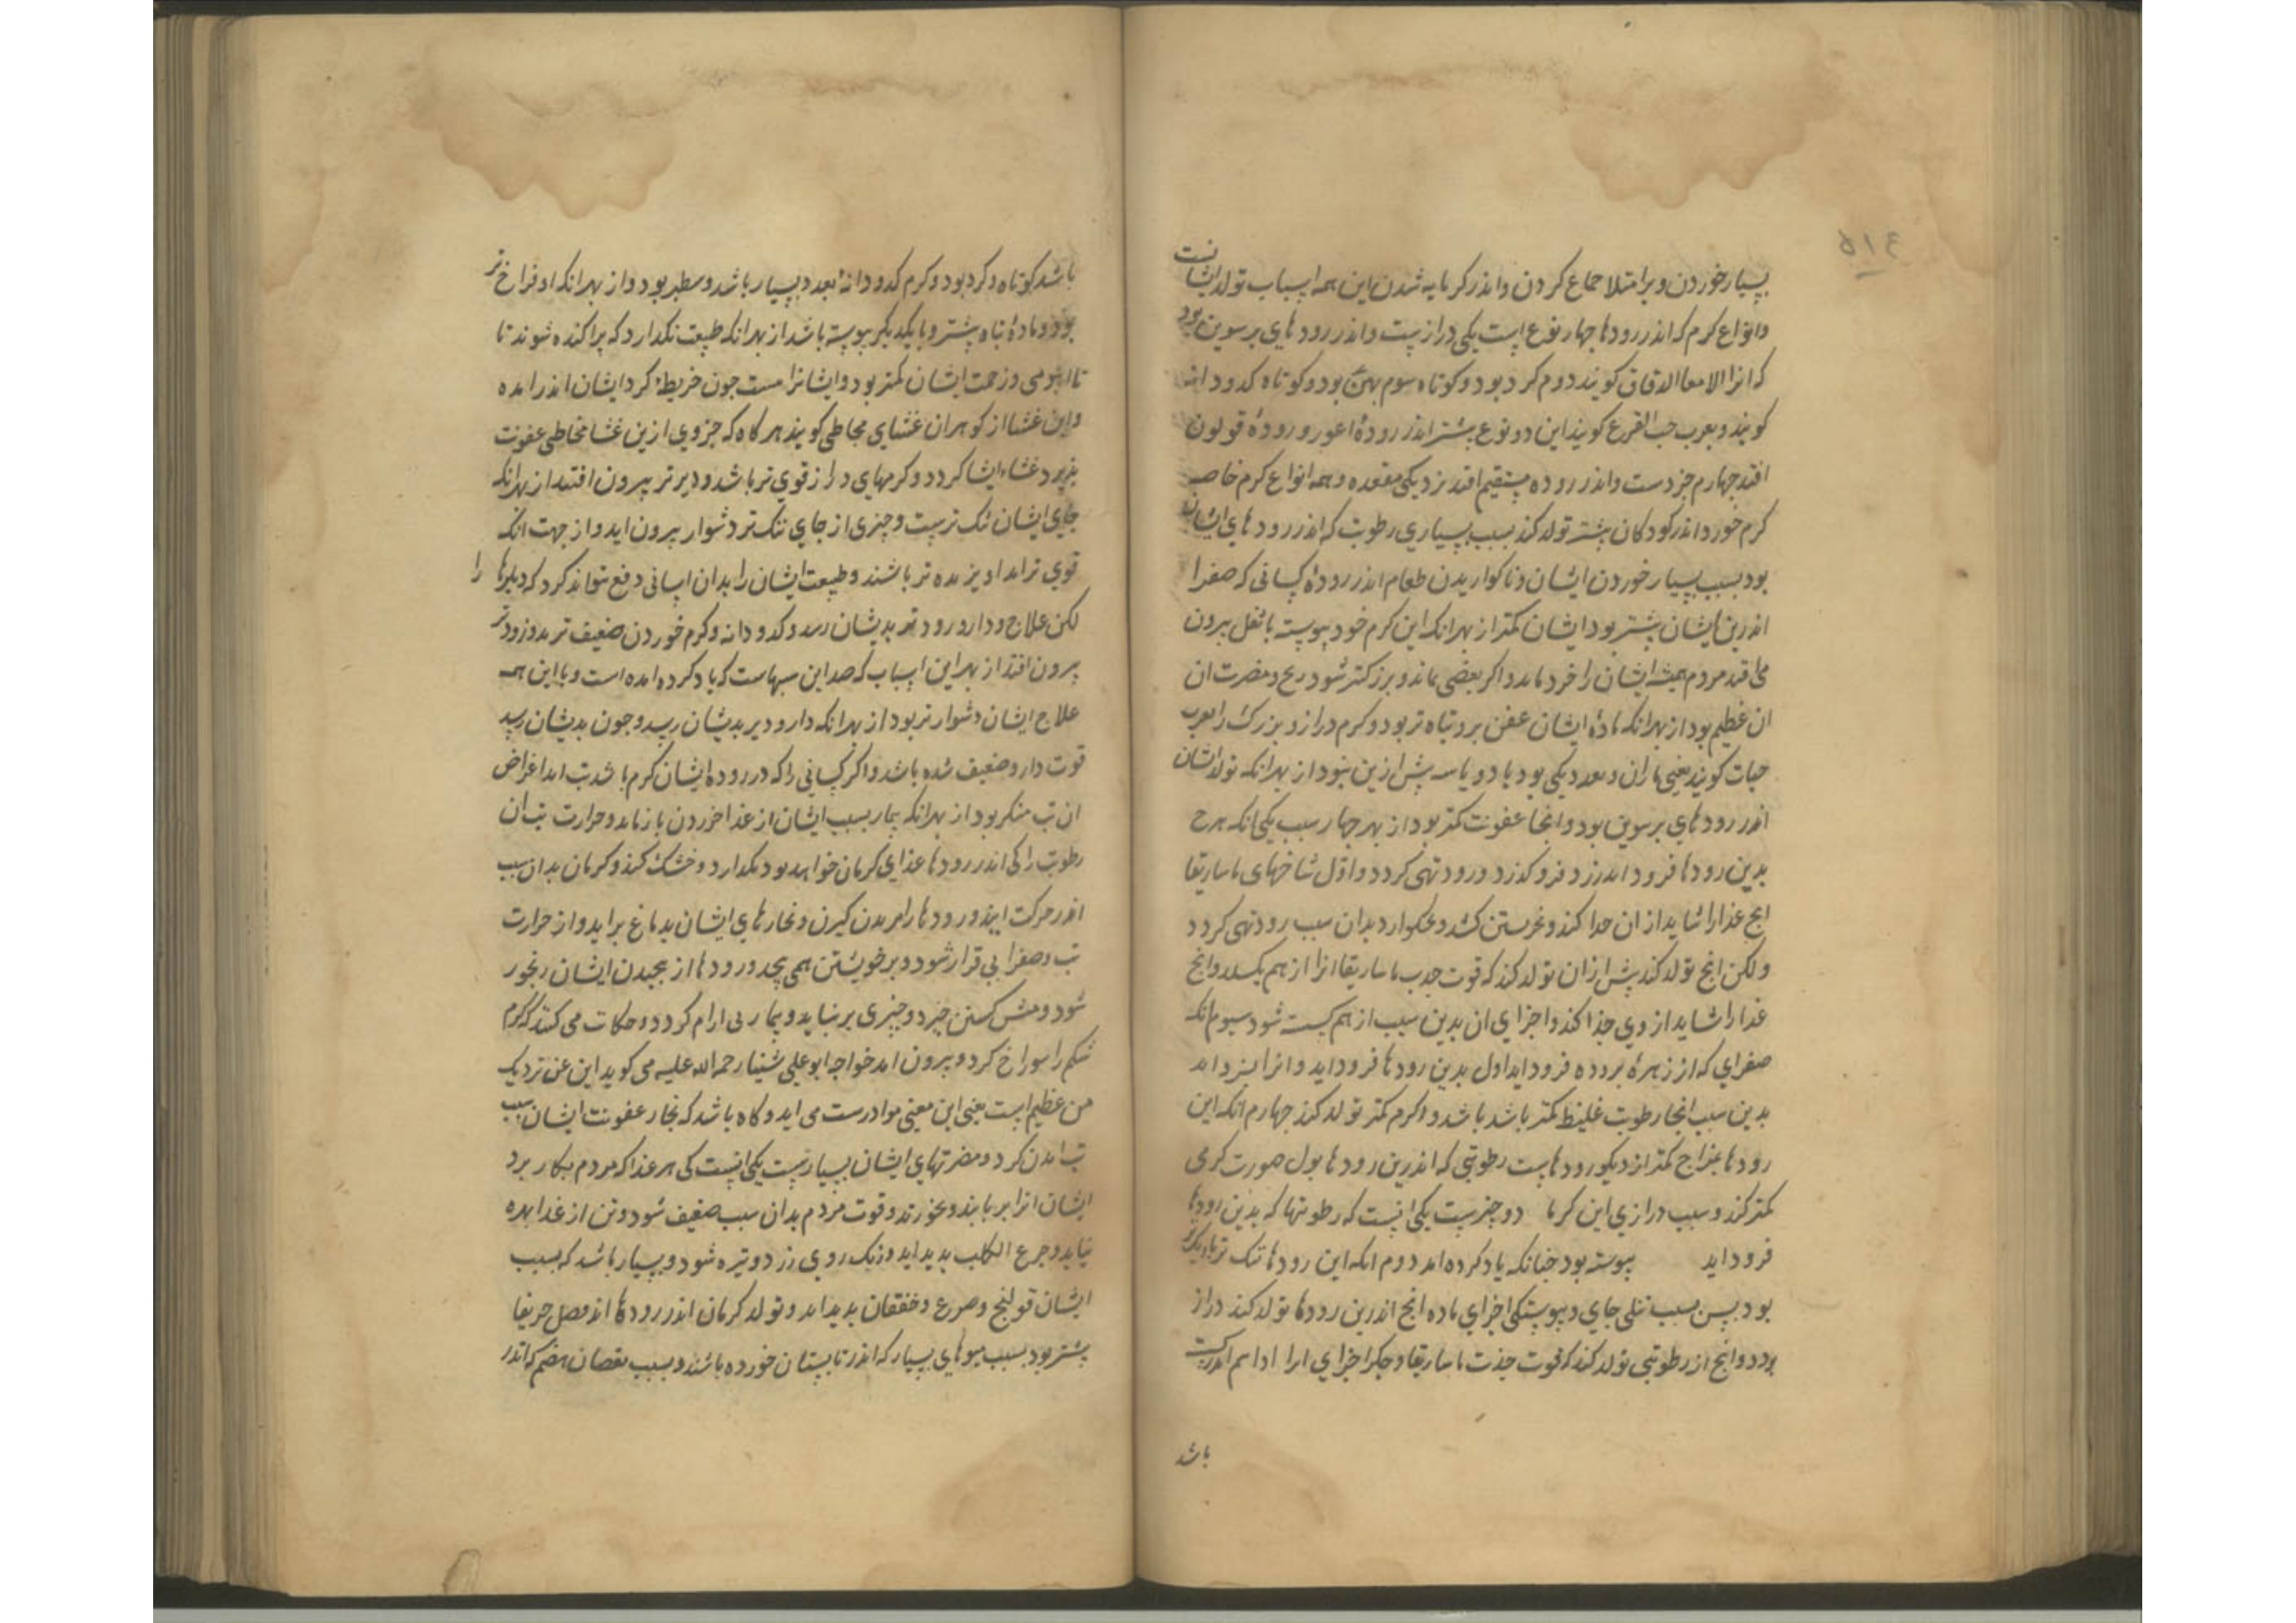 ۵۱۴
بسیار خوردن و بر امتلا جماع کردن و اندر کرمابه شدن این همه اسباب تولد ایشانست
وانواع کرم که اندر رودها جهار نوع است یکی درازست و اندر رود های برسوین بود
که انرا الامعا الدقاق کویند دوم کرد بود و کوتاه سوم بهن بود و کوتاه کدودانه
کویند و بعرب حب القرع کویند این دو نوع بیشتر اندر رودهٔ اعور و رودهٔ قولون
افتد جهارم خردست و اندر روده مستقیم افتد نزدیکی مقعده و همه انواع کرم خاصه
کرم خورد اندر کودکان بیشتر تولد کند بسبب بسیاری رطوبت که اندر رود های ایشان
بود بسبب بسیار خوردن ایشان و ناکواریدن طعام اندر رودهٔ کسانی که صفرا
اندرین ایشان بیشتر بود ایشان کمتر از بهر انکه این کرم خود پیوسته با ثفل بیرون
می افتد مردم همیشه ایشان را خرد ماند و اکر بعضی ماند و بزرکتر شود رنج و مضرت ان
ان عظیم بود از بهر انکه مادهٔ ایشان عفن بر و تباه تر بود و کرم دراز و بزرک را بعرب
حیات کویند یعنی ماران و بعدد یکی بود یا دو یا سه بیش ازین نبود از بهر انکه تولد ایشان
اندر رودهای برسوین بود و انجا عفونت کمتر بود از بهر جهار سبب یکی انکه هرج
بدین رودها فرود اندرزد فرو کذرد و رود تهی کردد و اول شاخهای ماساریقا
انج غذا را شاید از ان جدا کند و بخویشتن کشد و بدان سبب رود تهی کردد
ولکن انج تولد کند بیش از ان تولد کند که قوت جذب ماساریقا انرا از هم بکسلد و انج
غذا را شاید از وی جذا کند و اجزای ان بدین سبب از هم کسسته شود سیوم انکه
صفرای که از زهرهٔ بروده فرود اید اول بدین رودها فرود اید و انرا بزداید
بدین سبب انجا رطوبت غلیظ کمتر باشد باشد و اکرم کمتر تولد کند جهارم انکه این
رودها بمزاج کمتر از دیکر رودهاست رطوبتی که اندرین رودها بول صورت کرمی
کمتر کند و سبب درازی این کرما دو چیزست یکی انست که رطوبتها که بدین رودها
فرود اید پیوسته بود جنانکه یاد کرده اند دوم انکه این رودها تنک تر باریکتر
بود پس بسبب تنکی جای و پیوستکی اجزای ماده انج اندرین رودها تولد کند دراز
بود و انج از رطوبتی تولد کند که قوت جذب ماساریقا و جکر اجزای انرا از هم
باشد
باشد کوتاه و کرد بود و کرم کدودانه بعدد بسیار باشد و سطبر بود و از بهر انکه او فراخ تر
بود و مادهٔ تباه بیشتر و با یکدیکر پیوسته باشد از بهر انکه طبیعت نکذارد که پراکنده شوند تا
تا انبومی و زحمت ایشان کمتر بود و ایشانرا هست جون خریطهٔ کرد ایشان اندر امده
و این غشا از کوهر ان غشای مخاطی کویند هر کاه که جزوی ازین غشا مخاطی عفونت
پذیرد غشاء ایشان کردد و کرمهای دراز قوی تر باشد و دیرتر بیرون افتند از بهر انکه
جای ایشان تنک ترست و چیزی از جای تنک تر دشوار بیرون اید و از جهت انکه
قوی تر اند اویزنده تر باشند و طبیعت ایشان را بدان اسانی دفع نتواند کرد که دیکرها را
لکن علاج و دارو زود تر بدیشان رسد و کدودانه و کرم خوردن ضعیف تر بود و زودتر
بیرون افتد از بهر این اسباب که ضد این سببهاست که یاد کرده امده است و با این همه
علاج ایشان دشوارتر بود از بهر انکه دارو دیر بدیشان رسد و جون بدیشان رسد
قوت دارو ضعیف شده باشد و اکر کسانی را که در رودهٔ ایشان کرم باشد تب اید اعراض
ان تب منکر بود از بهر انکه بیمار بسبب ایشان از غذا خوردن باز ماند و حرارت تب ان
رطوبت را کی اندر رودها غذای کرمان خواهد بود بکدازد و خشک کند و کرمان بدان سبب
اندر حرکت ایند و رودها را کزیدن کیرن و بخارهای ایشان بدماغ براید و از حرارت
تب و صفرا بی قرار شود و بر خویشتن همی پیچد و رودها از پیچیدن ایشان رنجور
شود و منش کشتن خیزد و چیزی برنیاید و بیمار بی ارام کردد و حکایت می کنند که کرم
شکم را سوراخ کرد و بیرون امد خواجه ابو علی سینا رحمه الله علیه می کوید این عن نزدیک
من عظیم است یعنی این معنی موا درست می اید و کاه باشد که بخار عفونت ایشان سبب
تب امدن کردد و مضرتهای ایشان بسیارست یکی انست کی هر غذا که مردم بکار برد
ایشان انرا بربایند و بخورند و قوت مردم بدان سبب ضعیف شود و تن از غذا بهره
نیابد و جوع الکلب پدید اید و رنک روی زرد و تیره شود و بسیار باشد که بسبب
ایشان قولنج و صرع و خفقان پدید اید و تولد کرمان اندر رودها اندر فصل خریف
بیشتر بود بسبب میوهای بسیار که اندر تابستان خورده باشند و بسبب نقصان هضم که اندر